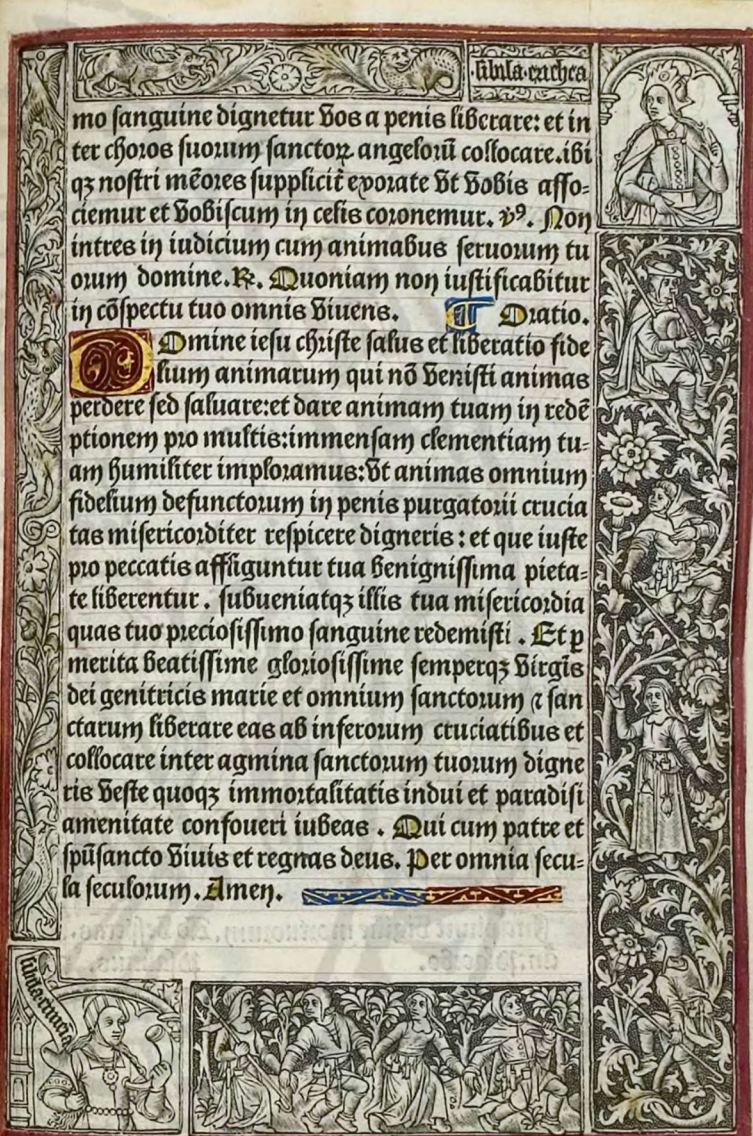 sibila erithea
mo sanguine dignetur vos a penis liberare: et in
ter choros suorum sanctoꝝ angelorū collocare. ibi
qꝫ nostri mēores suppliciť exorate vt vobis asso⸗
ciemur et vobiscum in celis coronemur. ꝟꝰ. Non
intres in iudicium cum animabus seruorum tu
orum domine. ℟. Quoniam non iustificabitur
in cōspectu tuo omnis viuens. ¶ Oratio.
DOmine iesu christe salus et liberatio fide
lium animarum qui nō venisti animas
perdere sed saluare: et dare animam tuam in redē
ptionem pro multis: immensam clementiam tu⸗
am humiliter imploramus: vt animas omnium
fidelium defunctorum in penis purgatorii crucia
tas misericorditer respicere digneris: et que iuste
pro peccatis affliguntur tua benignissima pieta⸗
te liberentur. subueniatqꝫ illis tua misericordia
quas tuo preciosissimo sanguine redemisti. Et ꝑ
merita beatissime gloriosissime semperqꝫ virgīs
dei genitricis marie et omnium sanctorum ⁊ san
ctarum liberare eas ab inferorum cruciatibus et
collocare inter agmina sanctorum tuorum digne
ris veste quoqꝫ immortalitatis indui et paradisi
amenitate confoueri iubeas. Qui cum patre et
spūsancto viuis et regnas deus. Per omnia secu⸗
la seculorum. Amen.